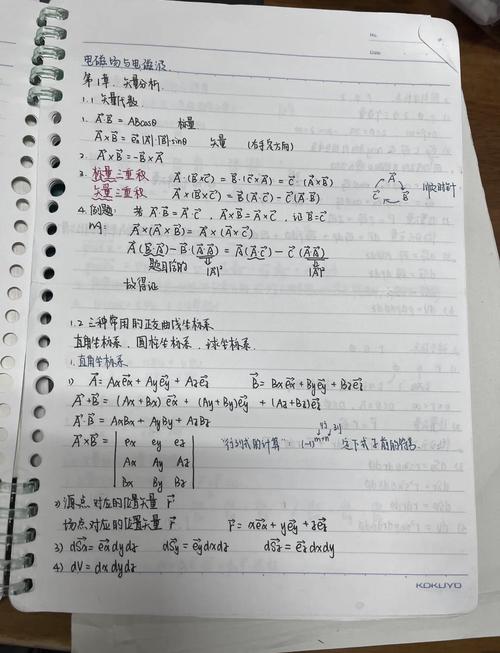 No.
Date
电磁场与电磁波
第1章 矢量分析
1.1 矢量代数
1. A⃗·B⃗ = ABcosθ 标量
A⃗×B⃗ = e⃗n|A⃗|·|B⃗|sinθ 矢量 (右手定方向)
2. A⃗×B⃗ = -B⃗×A⃗
3. 标量三重积 A⃗·(B⃗×C⃗) = B⃗·(C⃗×A⃗) = C⃗·(A⃗×B⃗) A⃗ B⃗ C⃗ 顺时针
矢量三重积 A⃗×(B⃗×C⃗) = B⃗(A⃗·C⃗) - C⃗(A⃗·B⃗)
4. 例题: 若 A⃗·B⃗ = A⃗·C⃗, A⃗×B⃗ = A⃗×C⃗, 证 B⃗=C⃗
A⃗×(A⃗×B⃗) = A⃗×(A⃗×C⃗)
A⃗(B⃗·A⃗) - B⃗(A⃗·A⃗) = A⃗(A⃗·C⃗) - C⃗(A⃗·A⃗)
题目给的 |A⃗|² |A⃗|²
故得证
1.2 三种常用的正交曲线坐标系
直角坐标系、圆柱坐标系、球坐标系.
1. 直角坐标系
1) A⃗ = Axe⃗x + Aye⃗y + Aze⃗z B⃗ = Bxe⃗x + Bye⃗y + Bze⃗z
A⃗+B⃗ = (Ax+Bx)e⃗x + (Ay+By)e⃗y + (Az+Bz)e⃗z
A⃗·B⃗ = AxBx + AyBy + AzBz
A⃗×B⃗ = | ex ey ez |
| Ax Ay Az | "行列式的计算" = (-1)^(m+n) 定下式子前的符号
| Bx By Bz |
2) 源点对应的位置矢量 r⃗
场点对应的位置矢量 r⃗ r⃗ = xe⃗x + ye⃗y + ze⃗z
3) dS⃗x = e⃗xdydz dS⃗y = e⃗ydxdz dS⃗z = e⃗zdxdy
4) dV = dxdydz
KOKUYO